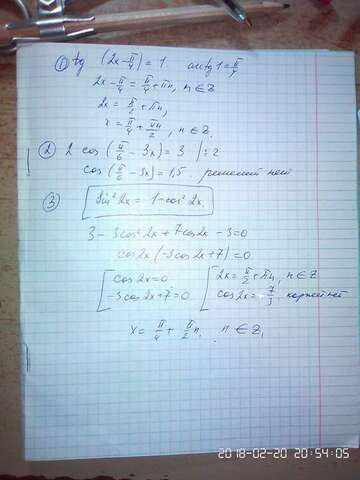 ① tg (2x-π/4) = 1 arctg 1 = π/4
2x - π/4 = π/4 + πn, n ∈ Z
2x = π/2 + πn,
x = π/4 + πn/2, n ∈ Z.
② 2 cos (π/6 - 3x) = 3 | : 2
cos (π/6 - 3x) = 1,5 решений нет
③ Sin²2x = 1 - cos²2x,
3 - 3cos²2x + 7cos2x - 3 = 0
cos2x (-3cos2x + 7) = 0
[cos2x = 0 [2x = π/2 + πn, n ∈ Z
-3cos2x + 7 = 0 cos2x = 7/3 корней нет
x = π/4 + π/2 n, n ∈ Z,
2018-02-20 20:54:05